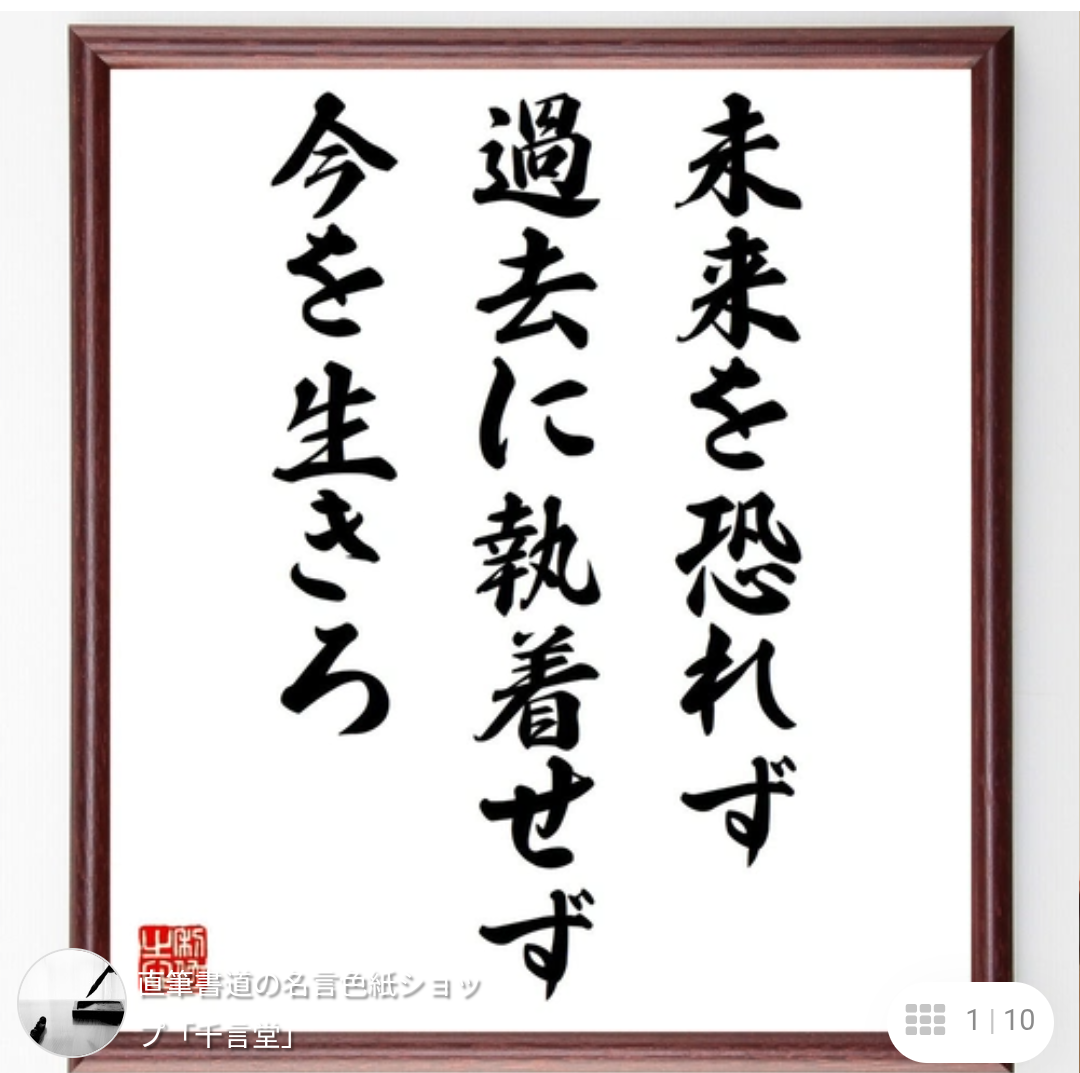 未来を恐れず
過去に執着せず
今を生きろ
直筆書道の名言色紙ショッ
プ「千言堂」
1 | 10